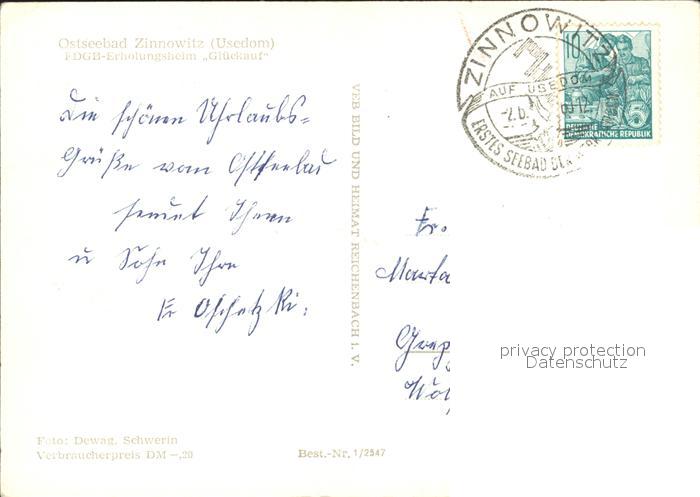 Ostseebad Zinnowitz (Usedom)
FDGB-Erholungsheim „Glückauf“
Die schönen Uhrlaubs=
Grüße vom Ostseebad
sendet Ihnen
u Sohn Ihre
Fr
VEB BILD UND HEIMAT REICHENBACH I. V.
ZINNOWITZ
AUF USEDOM
ERSTES SEEBAD DER
10
5
DEUTSCHE
DEMOKRATISCHE REPUBLIK
Fr.
Marta
privacy protection
Datenschutz
Foto: Dewag, Schwerin
Verbraucherpreis DM -,20
Best.-Nr. 1/2547